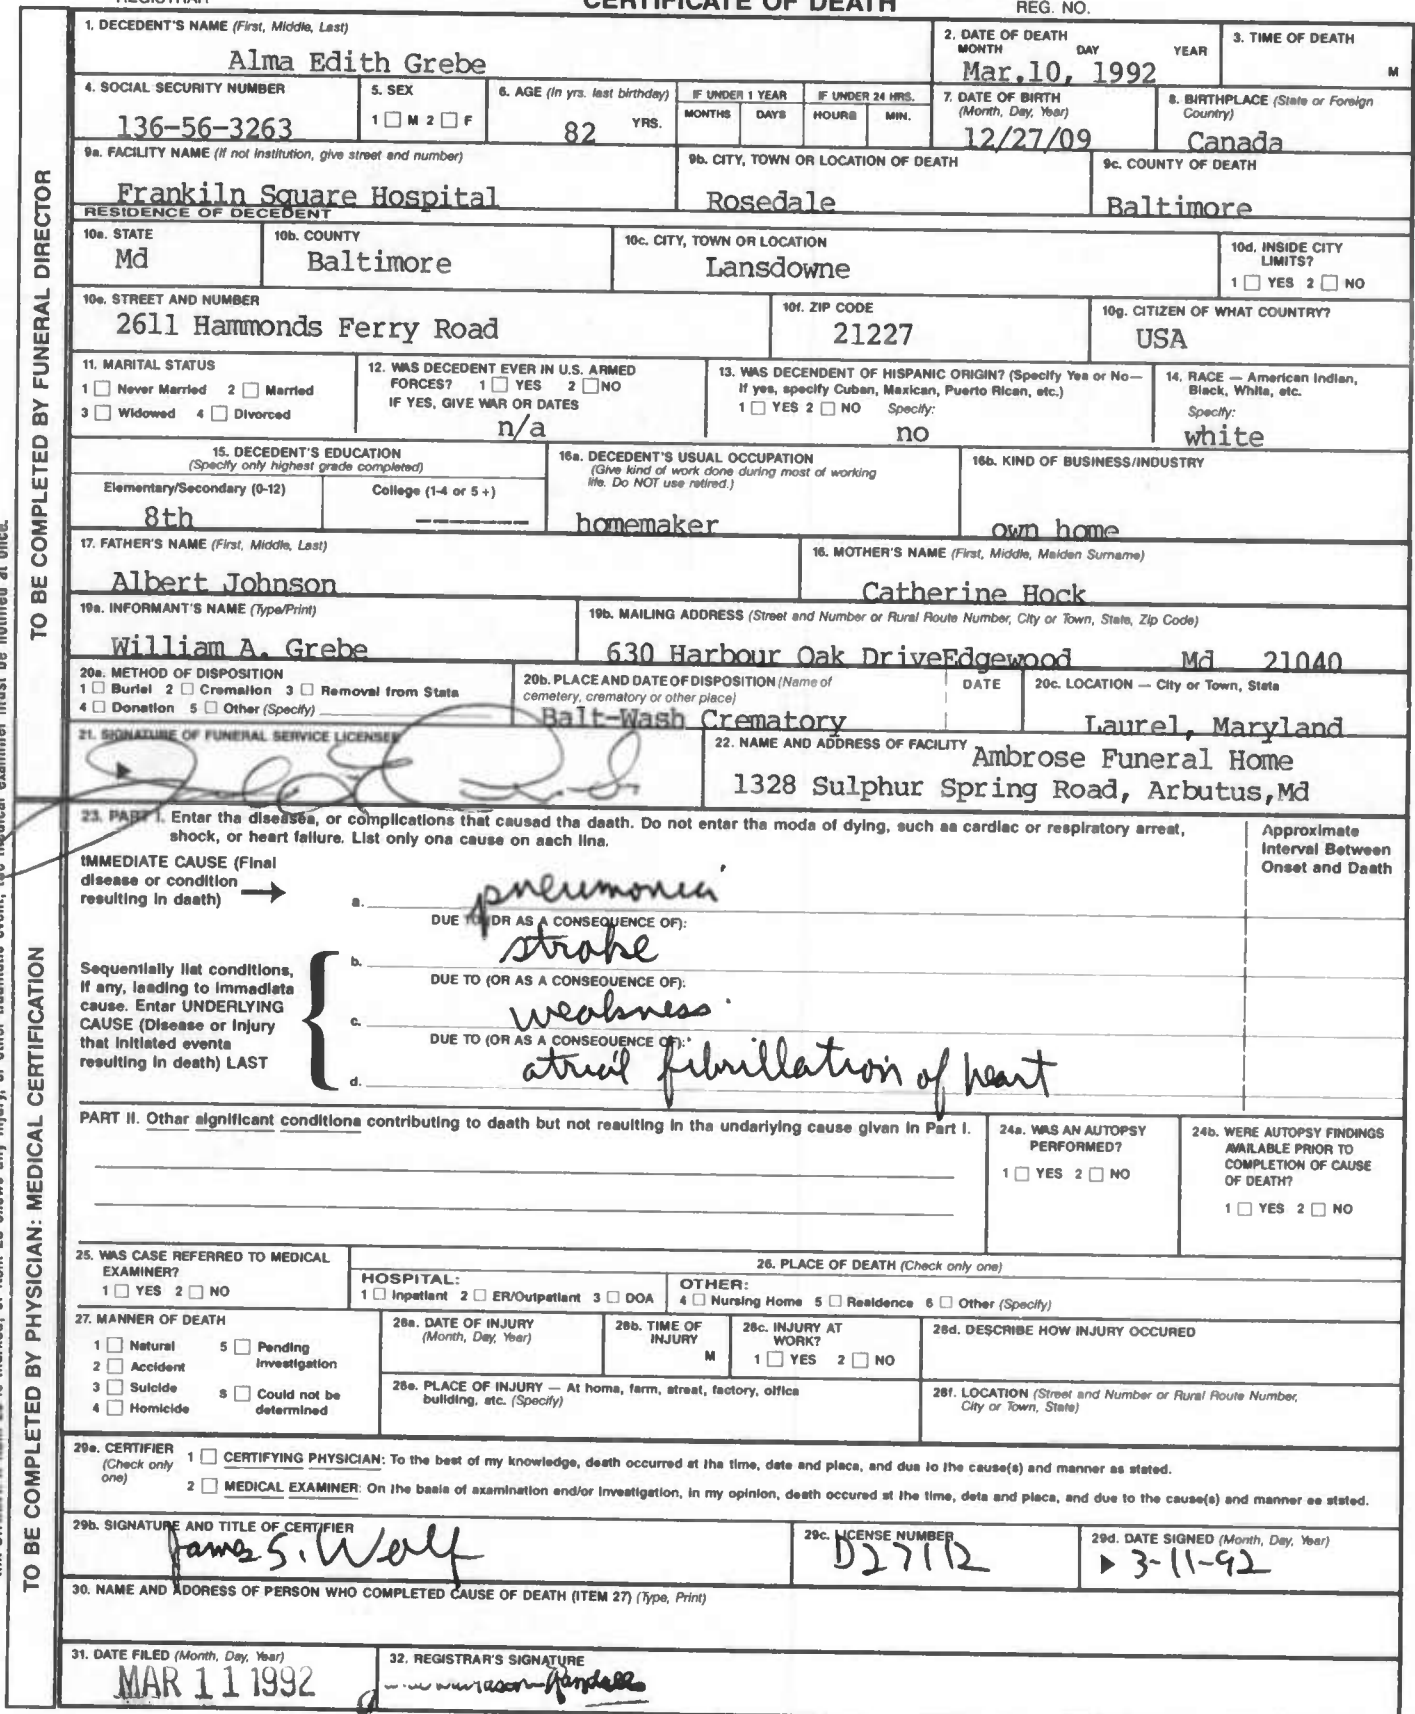 CERTIFICATE OF DEATH
REG. NO.
1. DECEDENT'S NAME (First, Middle, Last)
Alma Edith Grebe
2. DATE OF DEATH
MONTH DAY YEAR
Mar.10, 1992
3. TIME OF DEATH
M
4. SOCIAL SECURITY NUMBER
136-56-3263
5. SEX
1 M 2 F
6. AGE (In yrs. last birthday)
82 YRS.
IF UNDER 1 YEAR
MONTHS DAYS
IF UNDER 24 HRS.
HOURS MIN.
7. DATE OF BIRTH
(Month, Day, Year)
12/27/09
8. BIRTHPLACE (State or Foreign
Country)
Canada
9a. FACILITY NAME (If not institution, give street and number)
Frankiln Square Hospital
9b. CITY, TOWN OR LOCATION OF DEATH
Rosedale
9c. COUNTY OF DEATH
Baltimore
RESIDENCE OF DECEDENT
10a. STATE
Md
10b. COUNTY
Baltimore
10c. CITY, TOWN OR LOCATION
Lansdowne
10d. INSIDE CITY
LIMITS?
1 YES 2 NO
10e. STREET AND NUMBER
2611 Hammonds Ferry Road
10f. ZIP CODE
21227
10g. CITIZEN OF WHAT COUNTRY?
USA
11. MARITAL STATUS
1 Never Married 2 Married
3 Widowed 4 Divorced
12. WAS DECEDENT EVER IN U.S. ARMED
FORCES? 1 YES 2 NO
IF YES, GIVE WAR OR DATES
n/a
13. WAS DECENDENT OF HISPANIC ORIGIN? (Specify Yes or No—
If yes, specify Cuban, Maxican, Puerto Rican, etc.)
1 YES 2 NO Specify:
no
14. RACE — American Indian,
Black, White, etc.
Specify:
white
15. DECEDENT'S EDUCATION
(Specify only highest grade completed)
Elementary/Secondary (0-12)
8th
College (1-4 or 5+)
-------
16a. DECEDENT'S USUAL OCCUPATION
(Give kind of work done during most of working
life. Do NOT use retired.)
homemaker
16b. KIND OF BUSINESS/INDUSTRY
own home
17. FATHER'S NAME (First, Middle, Last)
Albert Johnson
16. MOTHER'S NAME (First, Middle, Maiden Surname)
Catherine Hock
19a. INFORMANT'S NAME (Type/Print)
William A. Grebe
19b. MAILING ADDRESS (Street and Number or Rural Route Number, City or Town, State, Zip Code)
630 Harbour Oak DriveEdgewood Md 21040
20a. METHOD OF DISPOSITION
1 Buriel 2 Cremation 3 Removal from Stata
4 Donation 5 Other (Specify)
20b. PLACE AND DATE OF DISPOSITION (Name of
cemetery, crematory or other place)
Balt-Wash Crematory
DATE
20c. LOCATION — City or Town, Stata
Laurel, Maryland
21. SIGNATURE OF FUNERAL SERVICE LICENSEE
22. NAME AND ADDRESS OF FACILITY
Ambrose Funeral Home
1328 Sulphur Spring Road, Arbutus,Md
TO BE COMPLETED BY FUNERAL DIRECTOR
23. PART I. Enter tha diseases, or complications that causad tha daath. Do not enter tha moda of dying, such aa cardiac or respiratory arreat,
shock, or heart failure. List only ona cause on aach lina.
Approximate
Interval Between
Onset and Daath
IMMEDIATE CAUSE (Final
disease or condition
resulting in daath)
a. pneumonia
DUE TO (OR AS A CONSEQUENCE OF):
b. stroke
DUE TO (OR AS A CONSEQUENCE OF):
c. weakness
DUE TO (OR AS A CONSEQUENCE OF):
d. atrial fibrillation of heart
Sequentially liat conditions,
If any, laading to immadiata
cause. Enter UNDERLYING
CAUSE (Disease or Injury
that initiated eventa
resulting in death) LAST
PART II. Othar significant conditiona contributing to daath but not reaulting in tha undarlying cause givan in Part I.
24a. WAS AN AUTOPSY
PERFORMED?
1 YES 2 NO
24b. WERE AUTOPSY FINDINGS
AVAILABLE PRIOR TO
COMPLETION OF CAUSE
OF DEATH?
1 YES 2 NO
25. WAS CASE REFERRED TO MEDICAL
EXAMINER?
1 YES 2 NO
26. PLACE OF DEATH (Check only one)
HOSPITAL:
1 Inpatiant 2 ER/Outpatiant 3 DOA
OTHER:
4 Nursing Home 5 Realdence 6 Other (Specify)
27. MANNER OF DEATH
1 Natural 5 Pending
Investigation
2 Accident
3 Suicide 8 Could not be
determined
4 Homicide
28a. DATE OF INJURY
(Month, Day, Year)
28b. TIME OF
INJURY
M
28c. INJURY AT
WORK?
1 YES 2 NO
28d. DESCRIBE HOW INJURY OCCURED
28e. PLACE OF INJURY — At homa, farm, atreat, factory, olfica
building, atc. (Specify)
28f. LOCATION (Street and Number or Rural Route Number,
City or Town, State)
29a. CERTIFIER
(Check only
one)
1 CERTIFYING PHYSICIAN: To the best of my knowledge, death occurred at tha time, date and placa, and dua to the cause(s) and manner as stated.
2 MEDICAL EXAMINER: On the basia of axamination and/or invastigation, in my opinion, death occured at the time, data and placa, and due to the cause(s) and manner ea stated.
29b. SIGNATURE AND TITLE OF CERTIFIER
James S. Wolf
29c. LICENSE NUMBER
D27112
29d. DATE SIGNED (Month, Day, Year)
3-11-92
30. NAME AND ADDRESS OF PERSON WHO COMPLETED CAUSE OF DEATH (ITEM 27) (Type, Print)
31. DATE FILED (Month, Day, Year)
MAR 11 1992
32. REGISTRAR'S SIGNATURE
TO BE COMPLETED BY PHYSICIAN: MEDICAL CERTIFICATION